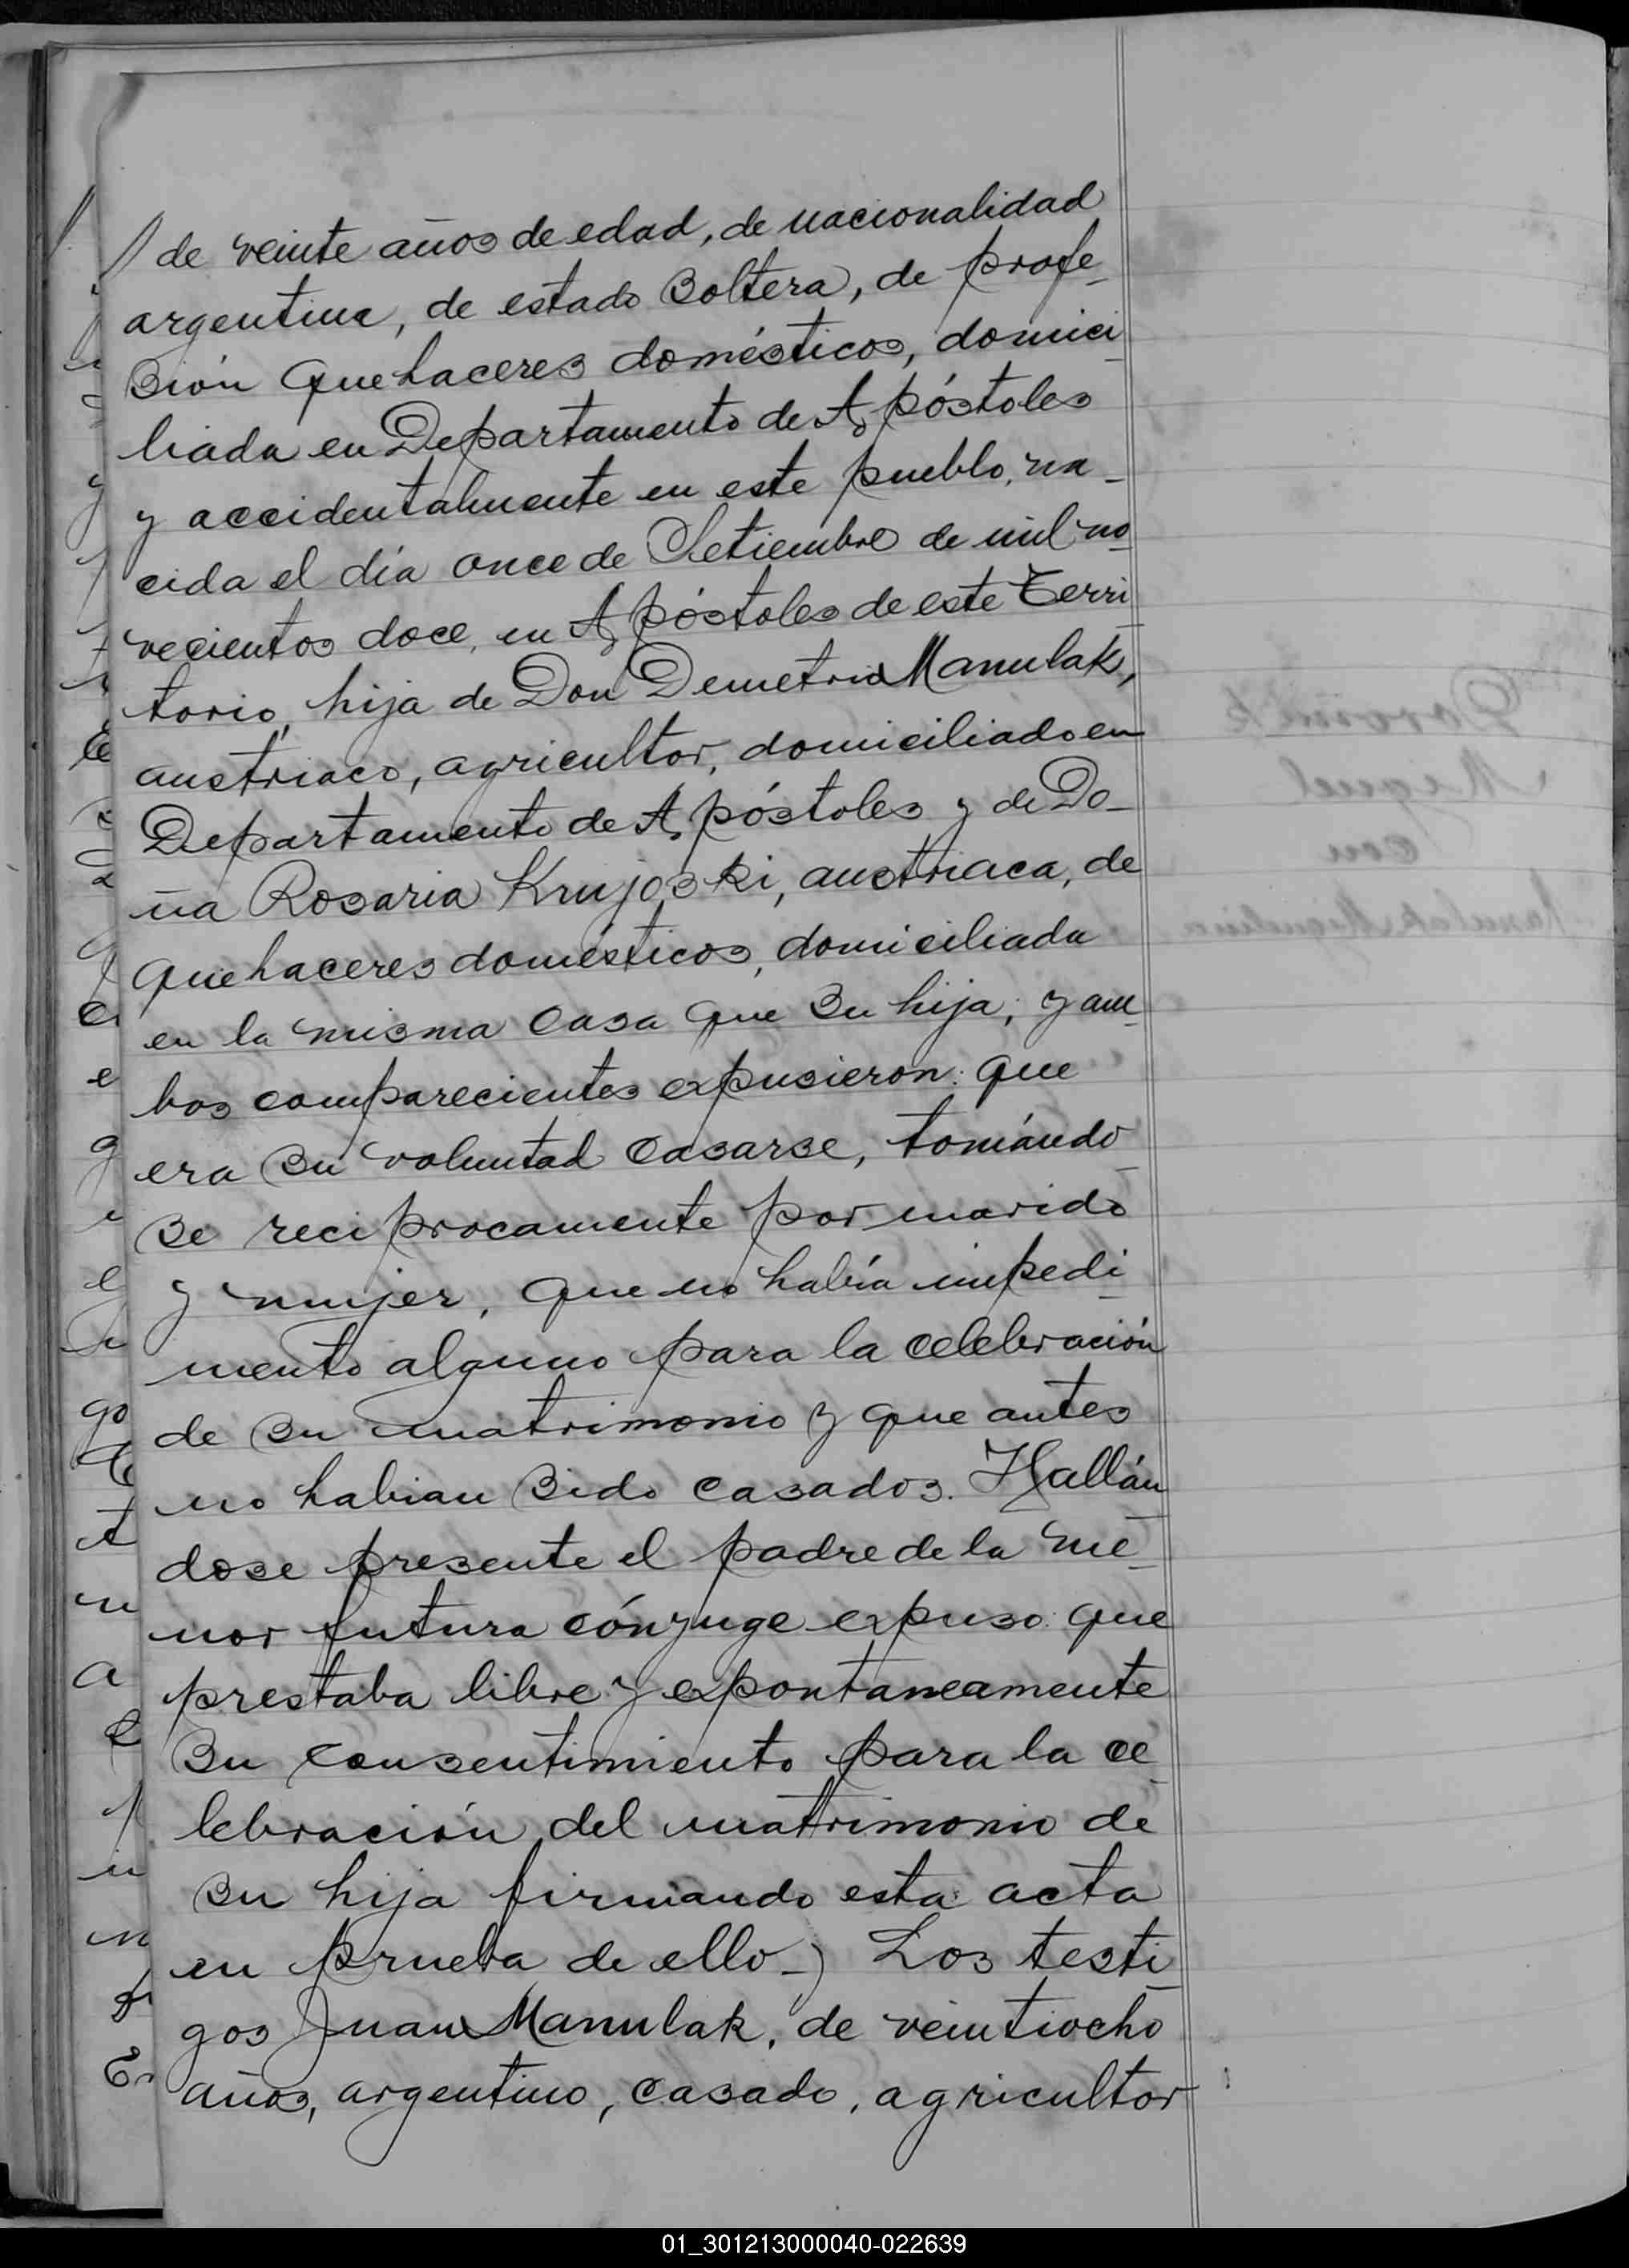 de veinte años de edad, de nacionalidad
argentina, de estado soltera, de profe_
sión quehaceres domésticos, domici_
liada en Departamento de Apóstoles
y accidentalmente en este pueblo, na_
cida el día once de Setiembre de mil no_
vecientos doce, en Apóstoles de este Terri_
torio, hija de Don Demetrio Manulak,
austriaco, agricultor, domiciliado en
Departamento de Apóstoles y de Do_
ña Rosaria Krujoski, austriaca, de
quehaceres domésticos, domiciliada
en la misma casa que su hija; y am_
bos comparecientes expusieron: que
era su voluntad casarse, tomándo_
se reciprocamente por marido
y mujer, que no había impedi_
mento alguno para la celebración
de su matrimonio y que antes
no habian sido casados. Hallán_
dose presente el padre de la me_
nor futura cónyuge expuso: que
prestaba libre y expontaneamente
su consentimiento para la ce_
lebración del matrimonio de
su hija firmando esta acta
en prueba de ello._) Los testi_
gos Juan Manulak, de veintiocho
años, argentino, casado, agricultor
01_301213000040-022639